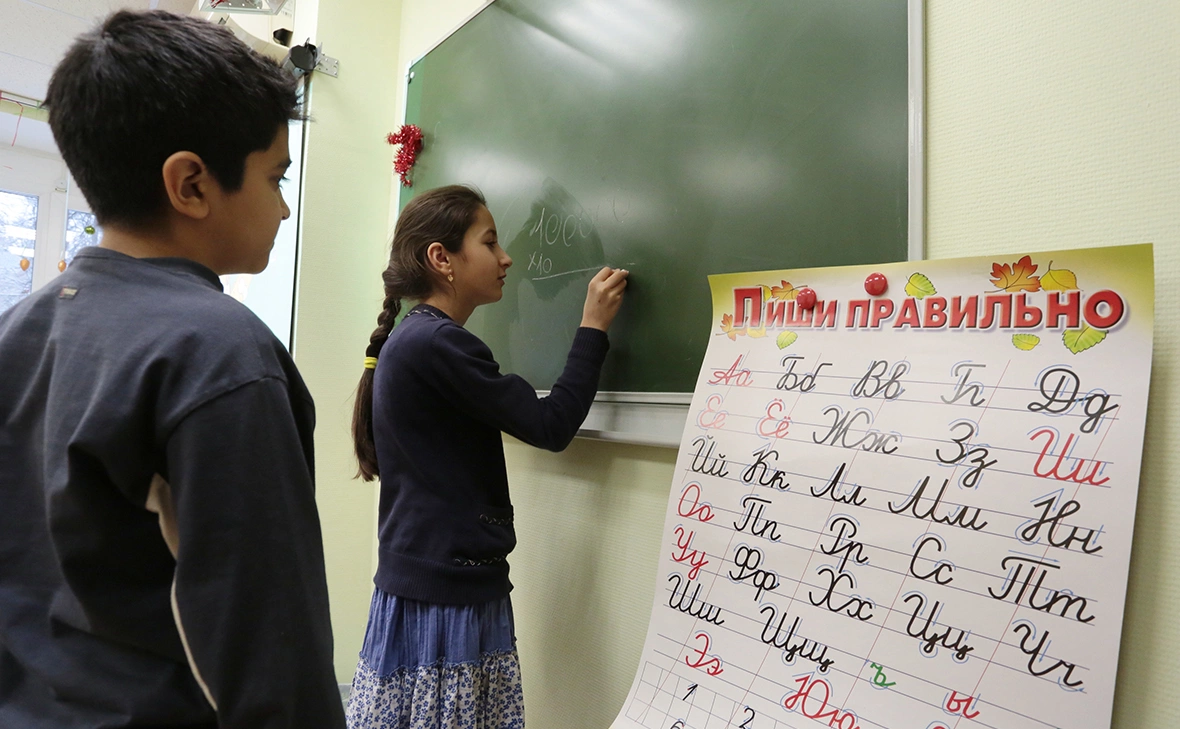 1000
×10
ПИШИ ПРАВИЛЬНО
Аа Бб Вв Гг Дд
Ее Ёё Жж Зз Ии
Йй Кк Лл Мм Нн
Оо Пп Рр Сс Тт
Уу Фф Хх Цц Чч
Шш Щщ ъ ы
Ээ Юю
1 2
6